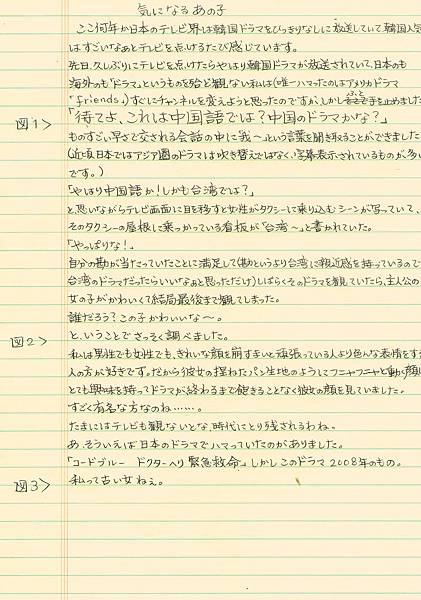 気になるあの子
ここ何年か日本のテレビ界は韓国ドラマをひっきりなしに放送していて韓国人気
はすごいなぁとテレビを点けるたび感じています。
先日、久しぶりにテレビを点けたらやはり韓国ドラマが放送されていて、日本も
海外も「ドラマ」というものを殆ど観ない私は(唯一ハマったのはアメリカドラマ
「friends」)すぐにチャンネルを変えようと思ったのですが、しかしふと手を止めました
図1> 「待てよ、これは中国語では?中国のドラマかな?」
ものすごい早さで交される会話の中に我〜という言葉を聞き取ることができました
(近頃日本ではアジア圏のドラマは吹き替えではなく、字幕表示されているものが多い
です。)
「やはり中国語か!しかも台湾では?」
と、思いながらテレビ画面に目を移すと女性がタクシーに乗り込むシーンが写っていて、
そのタクシーの屋根に乗っかっている看板が「台湾〜」と書かれていた。
「やっぱりな!」
自分の勘が当たっていたことに満足して(勘というより台湾に親近感を持っているので
台湾のドラマだったらいいなぁと思っただけ)しばらくそのドラマを観ていたら、主人公の
女の子がかわいくて結局最後まで観てしまった。
誰だろう?この子かわいいな〜。
図2> と、いうことでさっそく調べました。
私は男性でも女性でも、きれいな顔を崩すまいと頑張っている人より色んな表情をす
人の方が好きです。だから彼女の捏ねたパン生地のようにフニャフニャと動く顔に
とても興味を持ってドラマが終わるまで飽きることなく彼女の顔を見ていました。
すごく有名な方なのね……。
たまにはテレビも観ないとな、時代にとり残されるわね。
あ、そういえば日本のドラマでハマっていたのがありました。
「コードブルー ドクターヘリ緊急救命」しかしこのドラマ2008年のもの。
図3> 私って古い女ねぇ。